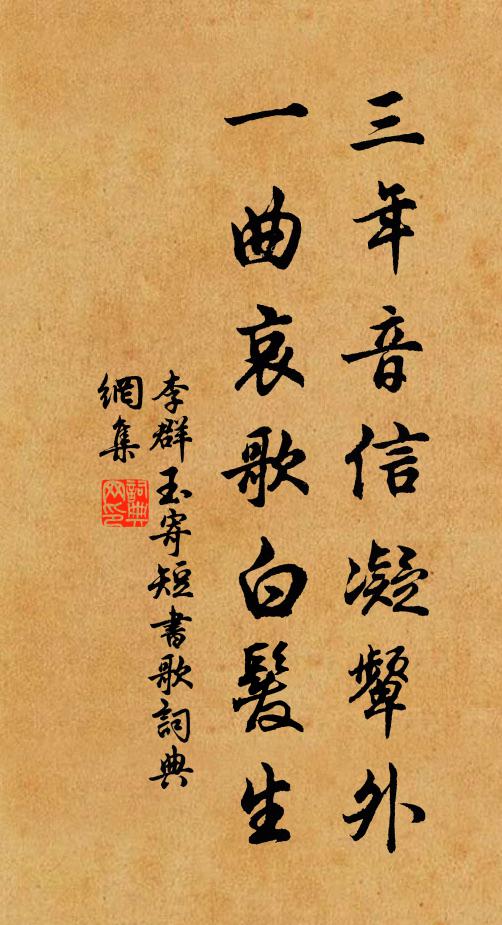 三年音信凝顰外
一曲哀歌白髮生
李群玉寄短書歌詞典
網集
詞典
网印